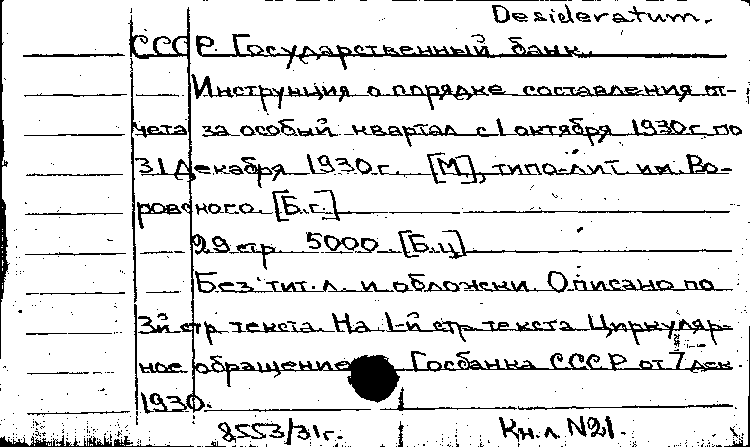 Desideratum.
СССР. Государственный банк.
Инструкция о порядке составления от-
чета за особый квартал с 1 октября 1930г. по
31 декабря 1930.г. [М.], типо-лит. им. Во-
ровского. [Б.г.]
29 стр. 5000. [Б.ц.]
Без тит. л. и обложки. Описано по
3й стр. текста. На 1-й стр. текста Циркуляр-
ное обращение Госбанка СССР от 7 дек.
1930.
8553/31г. Кн. л. N21.